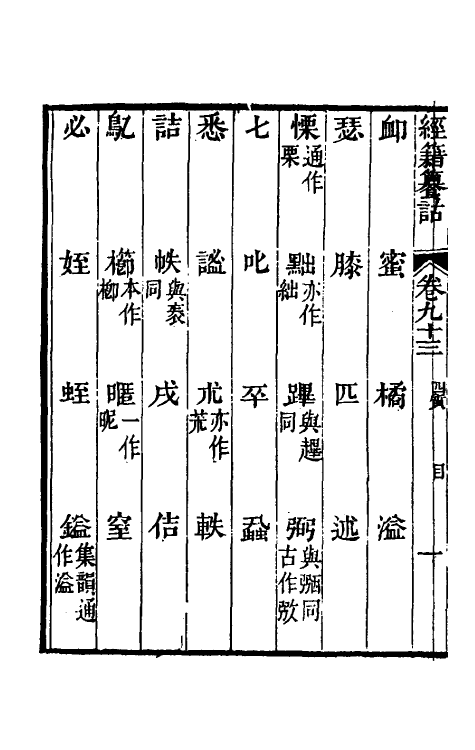 經籍籑詁 卷九十三 四質 目 一
卹 蜜 橘 溢
瑟 膝 匹 述
慄通作栗 黜亦作絀 蹕與趩同 弼與弻同古作㢸
七 叱 卒 蝨
悉 謐 朮亦作荒 軼
詰 帙與袠同 戌 佶
鳦 櫛本作楖 暱一作昵 窒
必 姪 蛭 鎰集韻通作溢